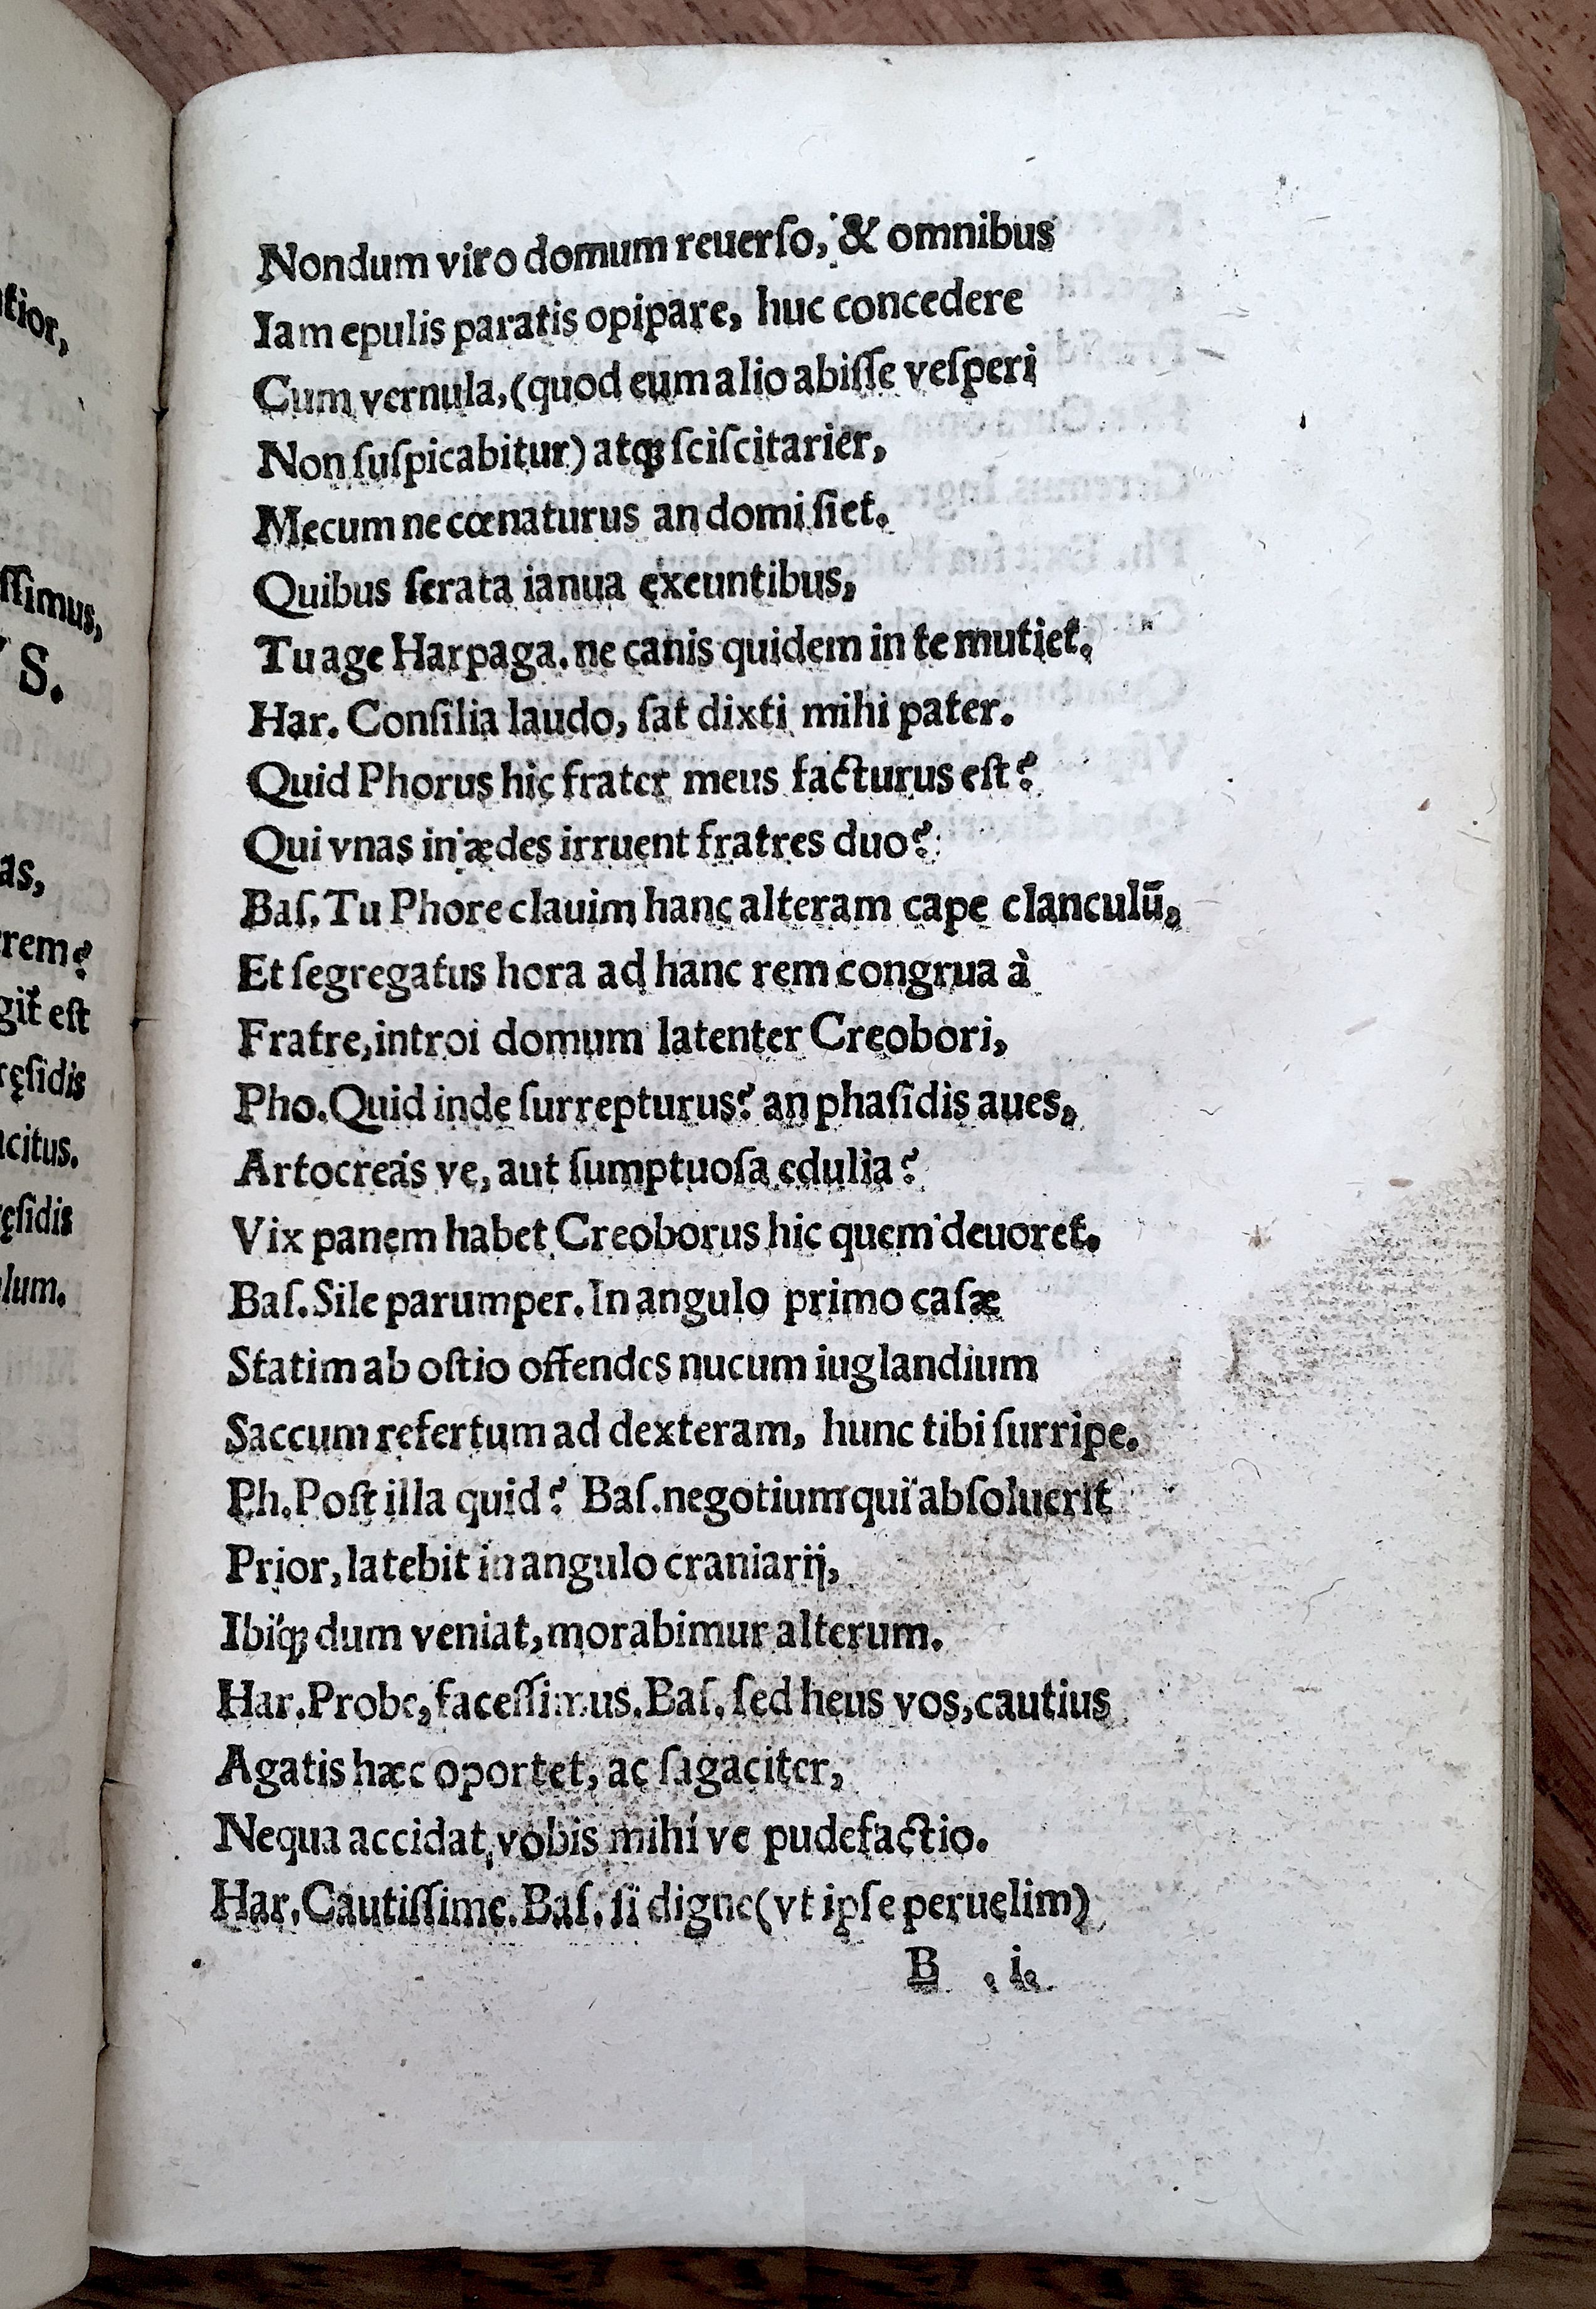 tior,
ſſimus,
S.
as,
rem?
git est
ręſidis
acitus.
ęſidis
lum.
Nondum viro domum reuerſo, & omnibus
Iam epulis paratis opipare, huc concedere
Cum vernula, (quod eum alio abiſſe veſperi
Non ſuſpicabitur) atqꝫ ſciſcitarier,
Mecum ne cœnaturus an domi ſiet.
Quibus ſerata ianua exeuntibus,
Tu age Harpaga. ne canis quidem in te mutiet.
Har. Conſilia laudo, ſat dixti mihi pater.
Quid Phorus hic frater meus facturus eſt?
Qui vnas in ædes irruent fratres duo?
Baſ. Tu Phore clauim hanc alteram cape clanculū,
Et ſegregatus hora ad hanc rem congrua à
Fratre, introi domum latenter Creobori,
Pho. Quid inde ſurrepturus? an phaſidis aues,
Artocreás ve, aut ſumptuoſa edulia?
Vix panem habet Creoborus hic quem deuoret.
Baſ. Sile parumper. In angulo primo caſæ
Statim ab oſtio offendes nucum iuglandium
Saccum refertum ad dexteram, hunc tibi ſurripe.
Ph. Poſt illa quid? Baſ. negotium qui abſoluerit
Prior, latebit in angulo craniarij,
Ibiqꝫ dum veniat, morabimur alterum.
Har. Probe, faceſſimus. Baſ. ſed heus vos, cautius
Agatis hæc oportet, ac ſagaciter,
Nequa accidat, vobis mihí ve pudefactio.
Har. Cautiſſime. Baſ. ſi digne (vt ipſe peruelim)
B . i.